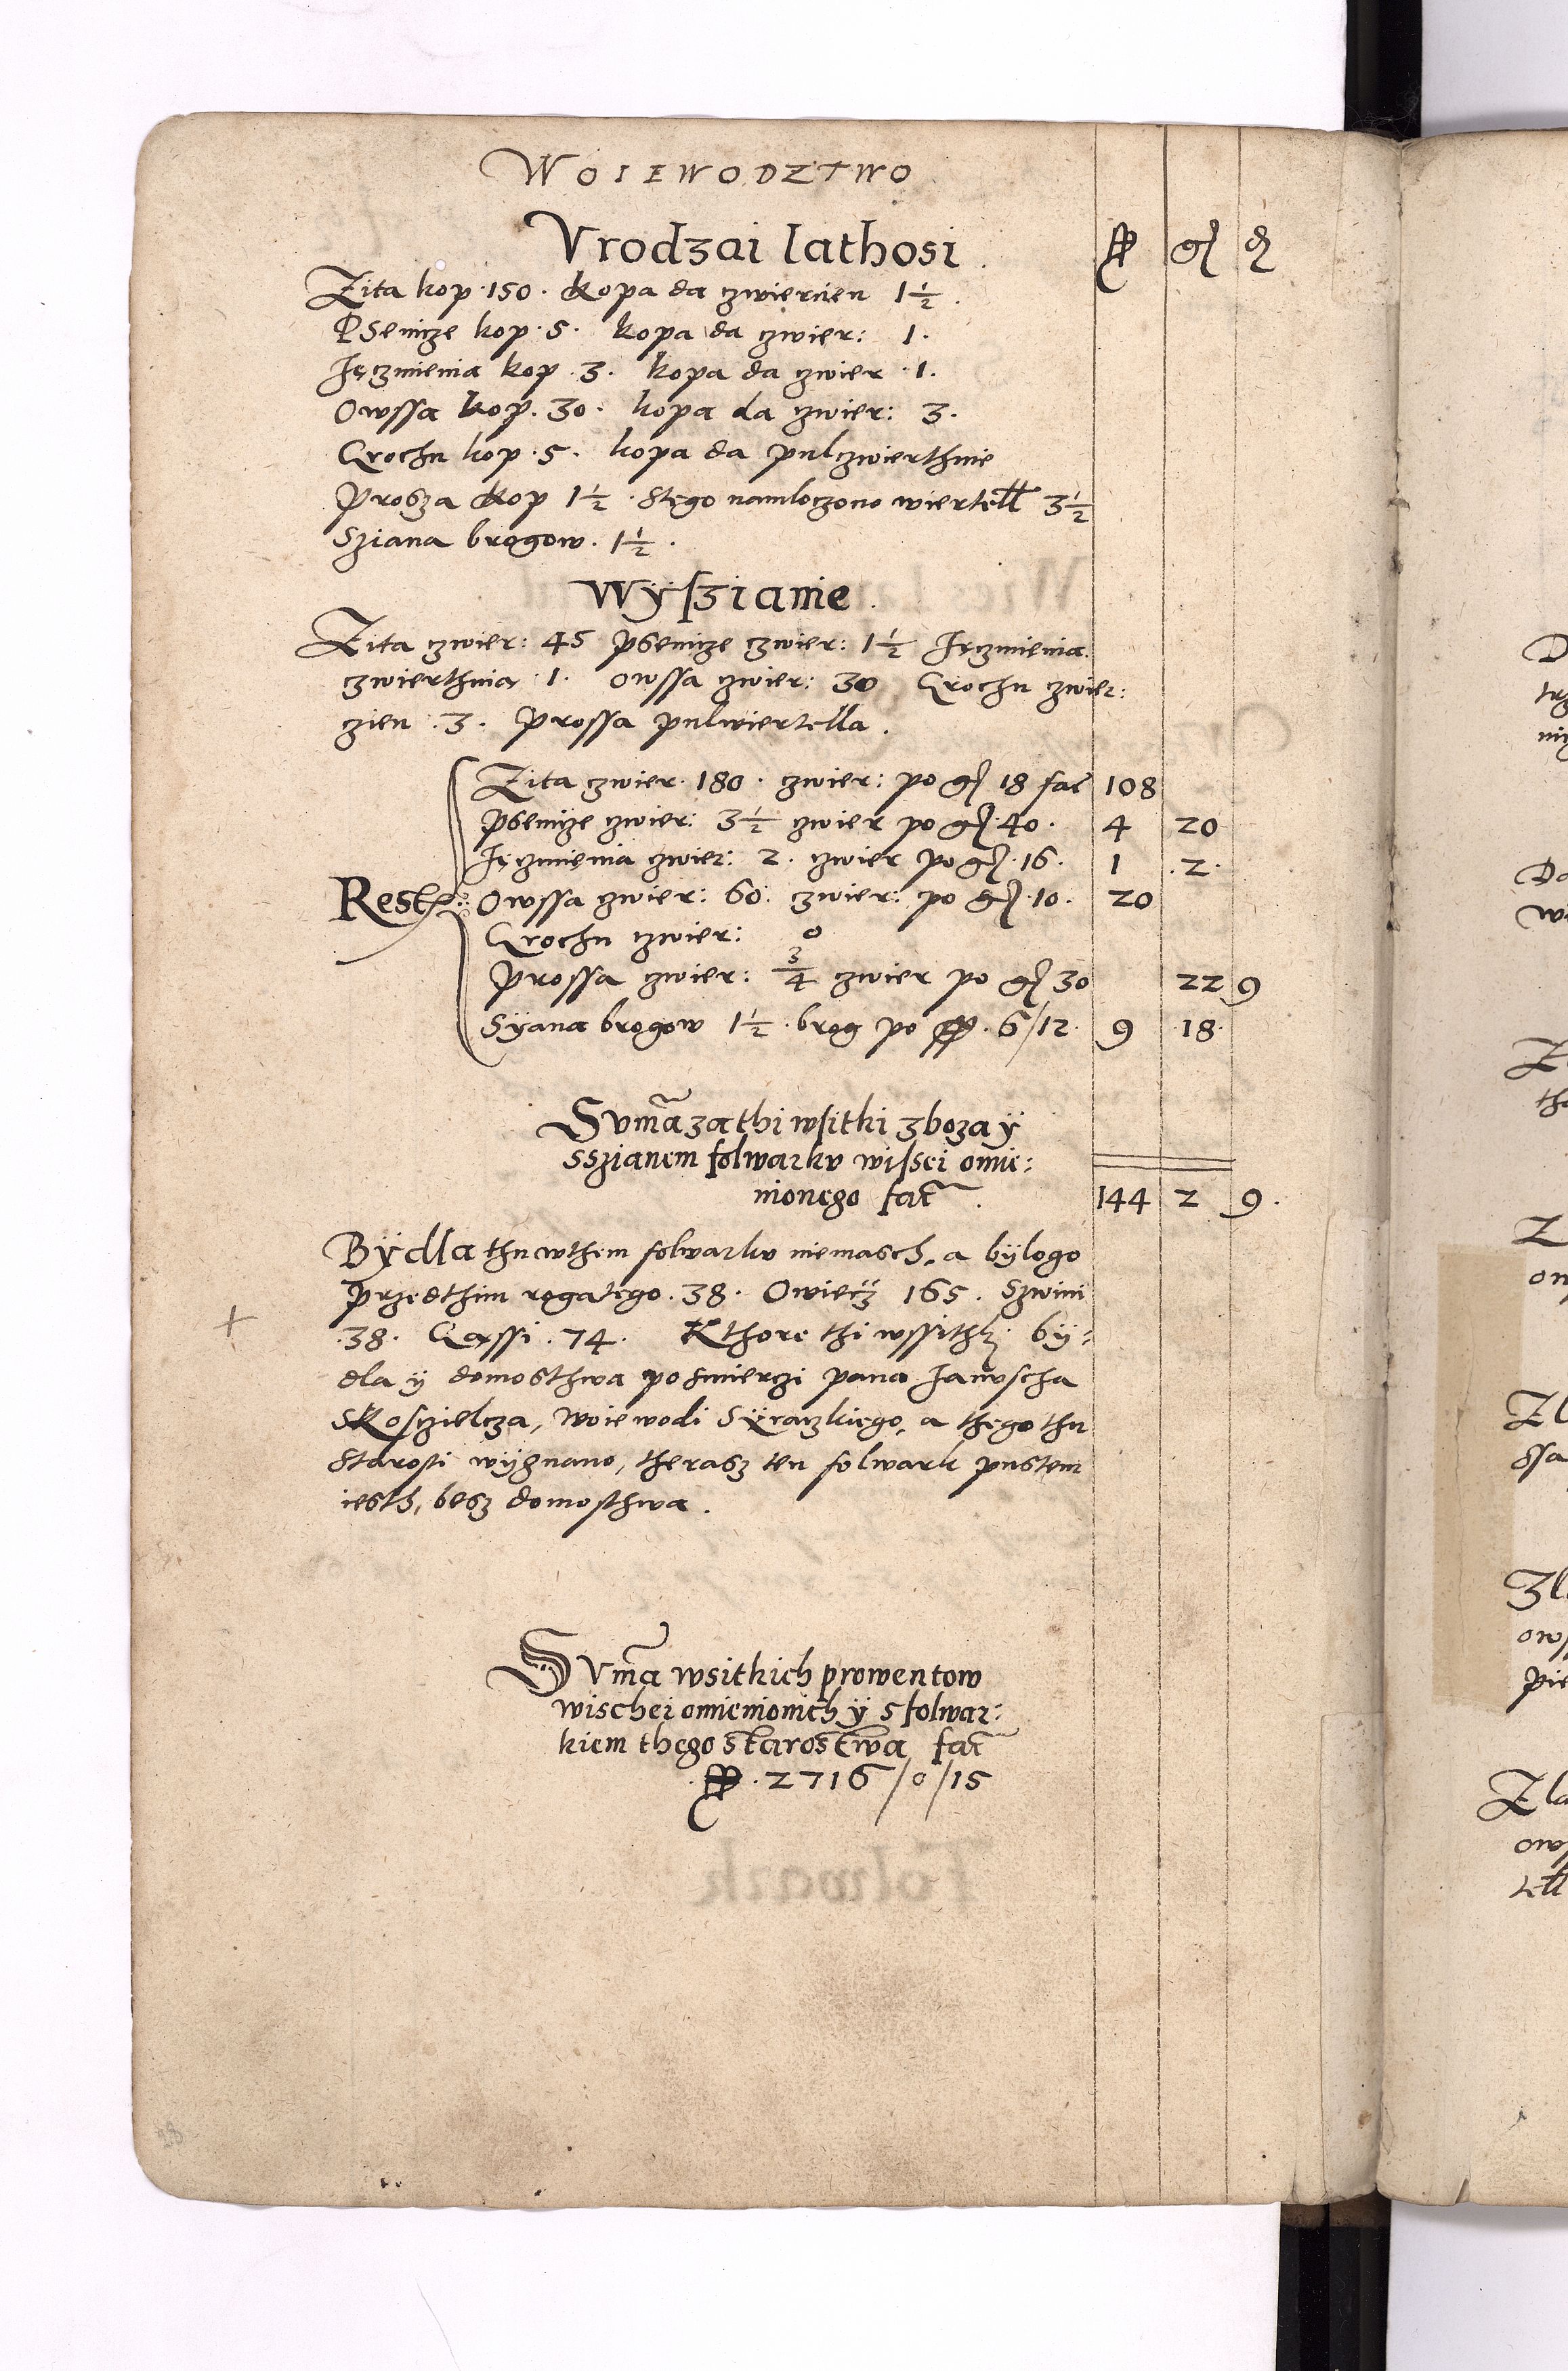 WOIEWODZTWO
Vrodzai lathosi fl gr d
Zita kop · 150 · kopa da czwiercien 1½.
Psenicze kop · 5 · kopa da czwier: 1.
Jęczmienia kop · 3 · kopa da czwier · 1.
Owssa kop. 30 · kopa da czwier: 3.
Grochu kop · 5 · kopa da pulczwierthnie
Prosza kop 1½ · Stego namloczono wiertell 3½
Sziana brogow · 1½ ·
Wÿszianie.
Zita czwier: 45 psenicze czwier: 1½ Jęczmienia
czwierthnia · 1. owssa czwier: 30 Grochu czwier:
czien . 3. prossa pulwiertella.
Zita czwier · 180 · czwier: po gr 18 fac 108
psenicze czwier: 3½ czwier po gr · 40 · 4 20
Jęczmienia czwier: 2. czwier po gr · 16. 1 .2.
Rest: Owssa czwier: 60: czwier: po gr · 10. 20
Grochu czwier: 0
prossa czwier: ¾ czwier po gr 30 22 9
Sÿana brogow 1½ · brog po fl · 6/12 · 9 18
Suma za thi wsitki zboza ÿ
sszianem folwarku wissei omie:
nionego facit. 144 2 9.
Bÿdla thu wthem folwarku niemasch, a bÿlogo
przedthim rogatego . 38. Owiecz 165. Szwini
.38. Gęssi . 74. Kthore thi wssithki bÿ:
dla ÿ domosthwa po smierczi pana Januscha
SKosczielcza, Woiewodi Sÿraczkiego, a thego thu
Starosti wÿgnano, therasz ten folwark pustem
iesth, besz domosthwa.
Suma wsitkich prowentow
wischei omienionich ÿ sfolwar:
kiem thego starostwa facit
fl. 2716/0/15
28